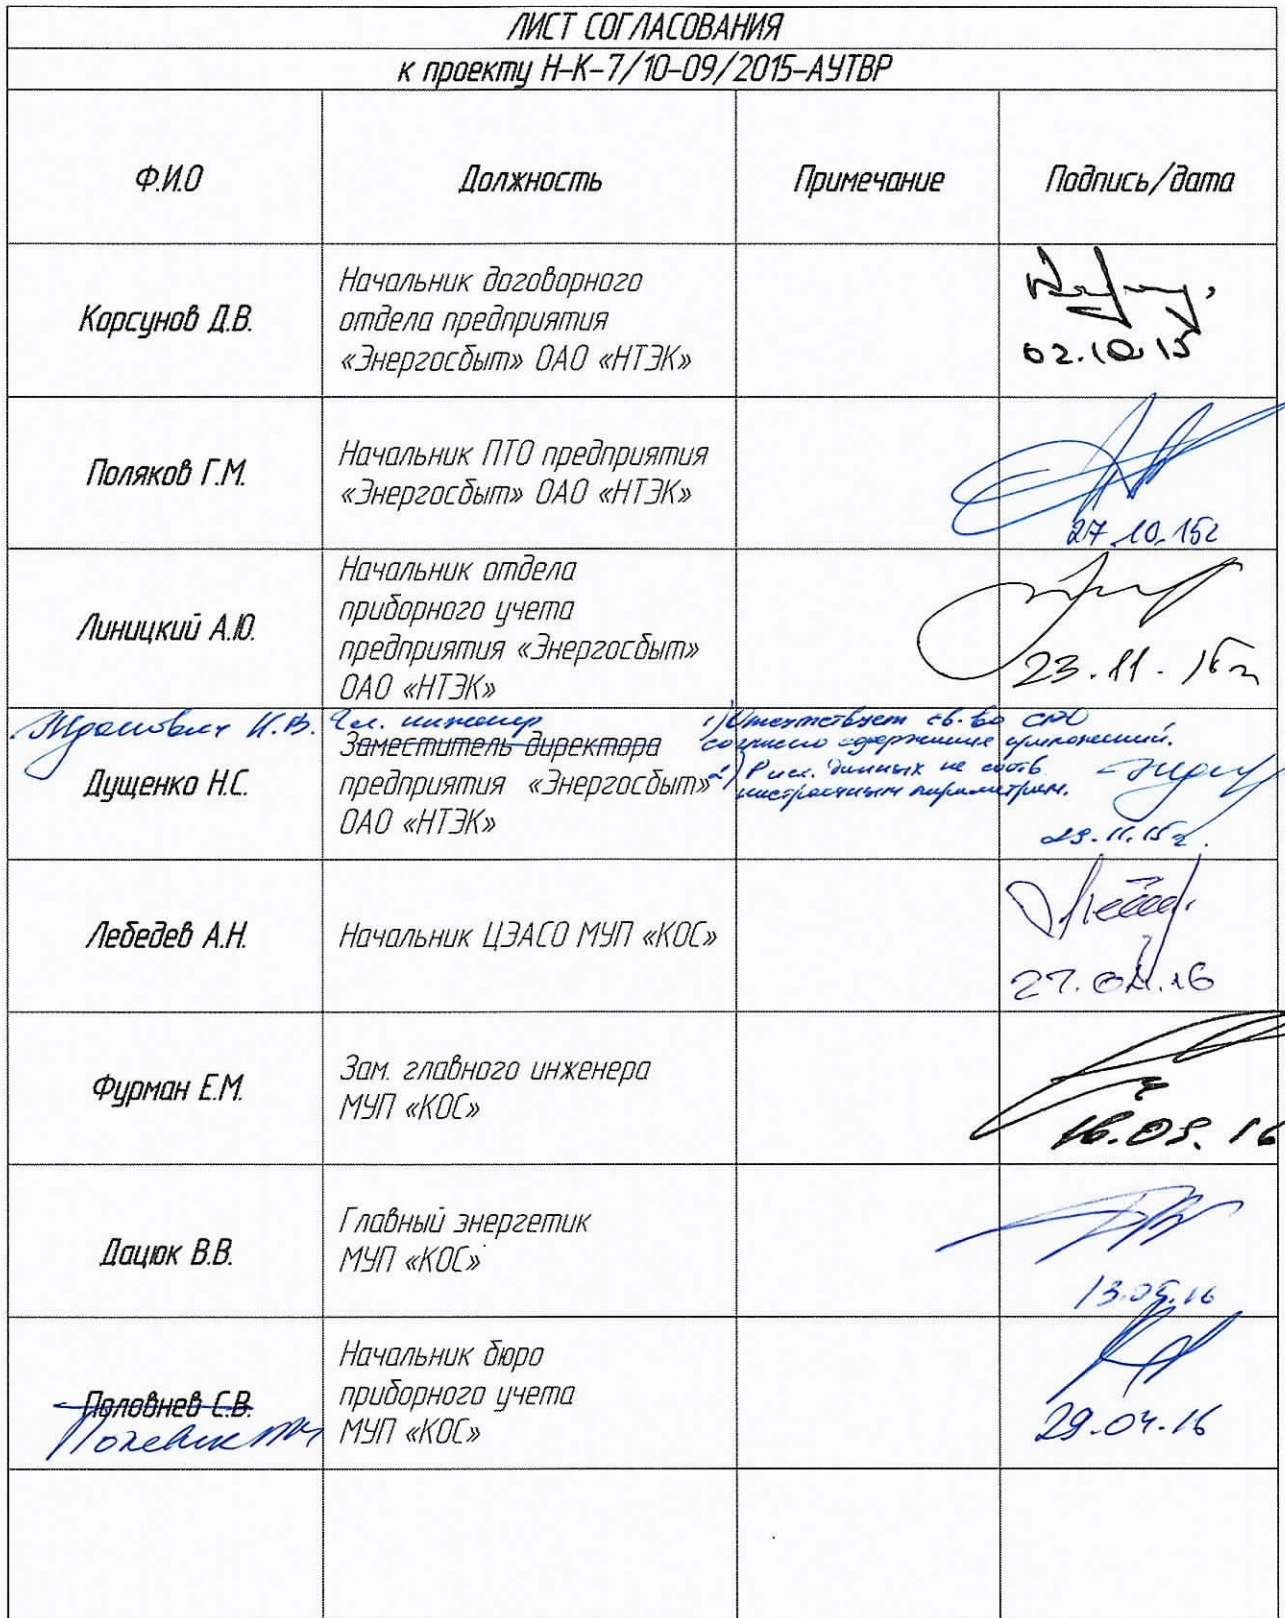 ЛИСТ СОГЛАСОВАНИЯ
к проекту Н-К-7/10-09/2015-АУТВР
Ф.И.О
Должность
Примечание
Подпись/дата
Корсунов Д.В.
Начальник договорного
отдела предприятия
«Энергосбыт» ОАО «НТЭК»
02.10.15
Поляков Г.М.
Начальник ПТО предприятия
«Энергосбыт» ОАО «НТЭК»
27.10.15г
Линицкий А.Ю.
Начальник отдела
приборного учета
предприятия «Энергосбыт»
ОАО «НТЭК»
23.11.15г
Гл. инженер
Дущенко Н.С.
Заместитель директора
предприятия «Энергосбыт»
ОАО «НТЭК»
1) Отсутствует св-во СРО
согласно
2) данных не соотв.
настроечным параметрам.
Лебедев А.Н.
Начальник ЦЭАСО МУП «КОС»
Фурман Е.М.
Зам. главного инженера
МУП «КОС»
Дацюк В.В.
Главный энергетик
МУП «КОС»
13.05.16
Половнев С.В.
Начальник бюро
приборного учета
МУП «КОС»
29.04.16